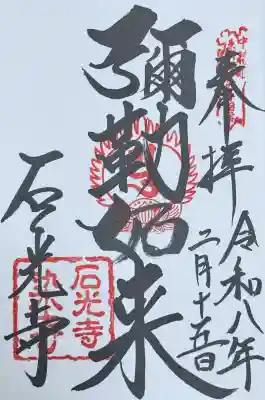 奉拝
令和八年
二月十五日
彌勒如来
石光寺
石光寺